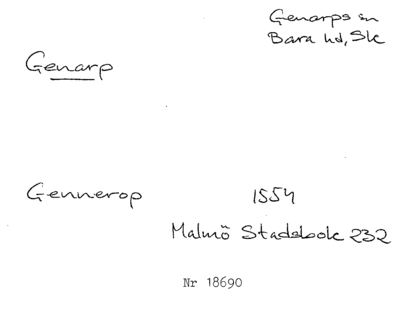 Genarps sn
Bara hd, Sk
Genarp
Gennerop 1554
Malmö Stadsbok 232
Nr 18690